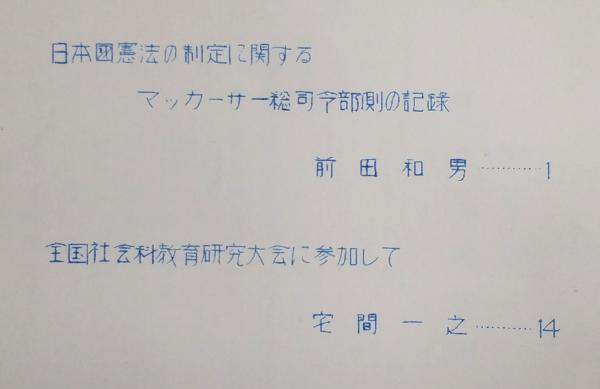 日本國憲法の制定に関する
マッカーサー総司令部側の記録
前田和男…………1
全国社会科教育研究大会に参加して
宅間一之…………14